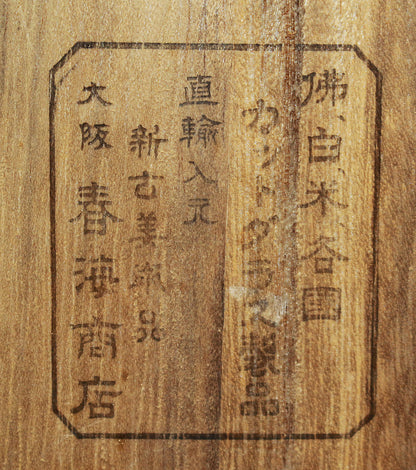 佛、白、米、各國
カットグラス製品
直輸入元
新古美術品
大阪 春海商店